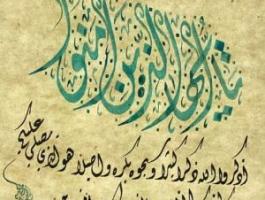 يا أيها الذين آمنوا
اذكروا الله ذكرا كثيرا وسبحوه بكرة وأصيلا هو الذي يصلي عليكم